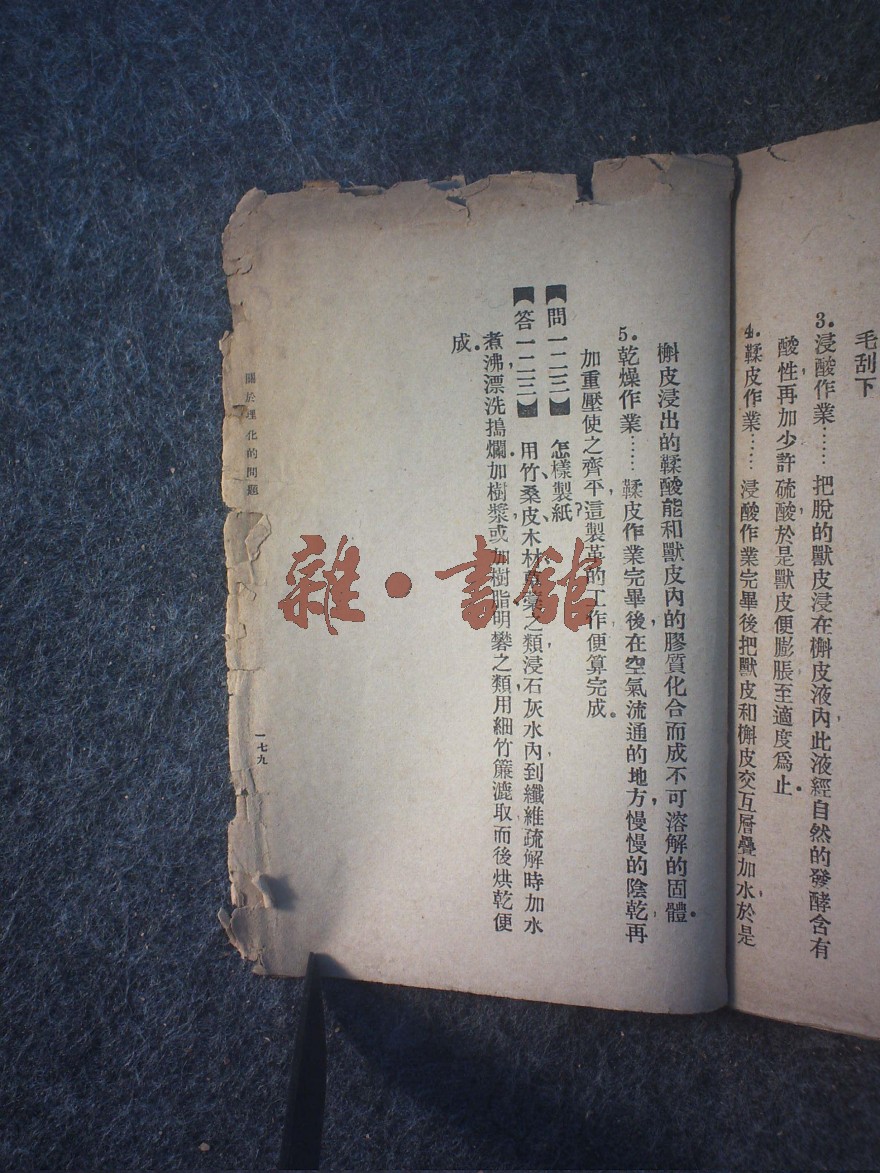 毛刮下
3.浸酸作業……把脫的獸皮浸在槲皮液內,此液經自然的發酵含有
酸性,再加少許硫酸,於是獸皮便膨脹至適度爲止。
4.鞣皮作業……浸酸作業完畢後,把獸皮和槲皮交互層疊加水,於是
槲皮浸出的鞣酸能和獸皮內的膠質化合而成不可溶解的固體。
5.乾燥作業……鞣皮作業完畢後,在空氣流通的地方,慢慢的陰乾,再
加重壓使之齊平,這製革的工作便算完成。
【問一二三】 怎樣製紙?
【答一二三】 用竹、桑皮、木材、草藁之類,浸石灰水內,到纖維疏解時,加水
煮沸,漂洗,搗爛,加樹漿,或加樹脂明礬之類,用細竹簾漉取,而後烘乾便
成。
關於理化的問題
一七九
雜·書館